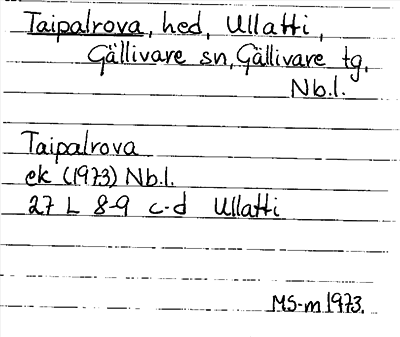 Taipalrova, hed, Ullatti,
Gällivare sn, Gällivare tg,
Nb.l.
Taipalrova
ek (1973) Nb.l.
27 L 8-9 c-d Ullatti
MS-m 1973.